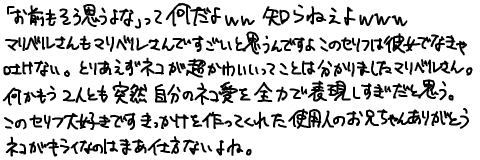 「お前もそう思うよな」って何だよww 知らねぇよwww
マリベルさんもマリベルさんですごいと思うんですよこのセリフは彼女でなきゃ
吐けない。とりあえずネコが超かわいいってことは分かりましたマリベルさん。
何かもう2人とも突然自分のネコ愛を全力で表現しすぎだと思う。
このセリフ大好きですきっかけを作ってくれた使用人のお兄ちゃんありがとう
ネコがキライなのはまあ仕方ないよね。